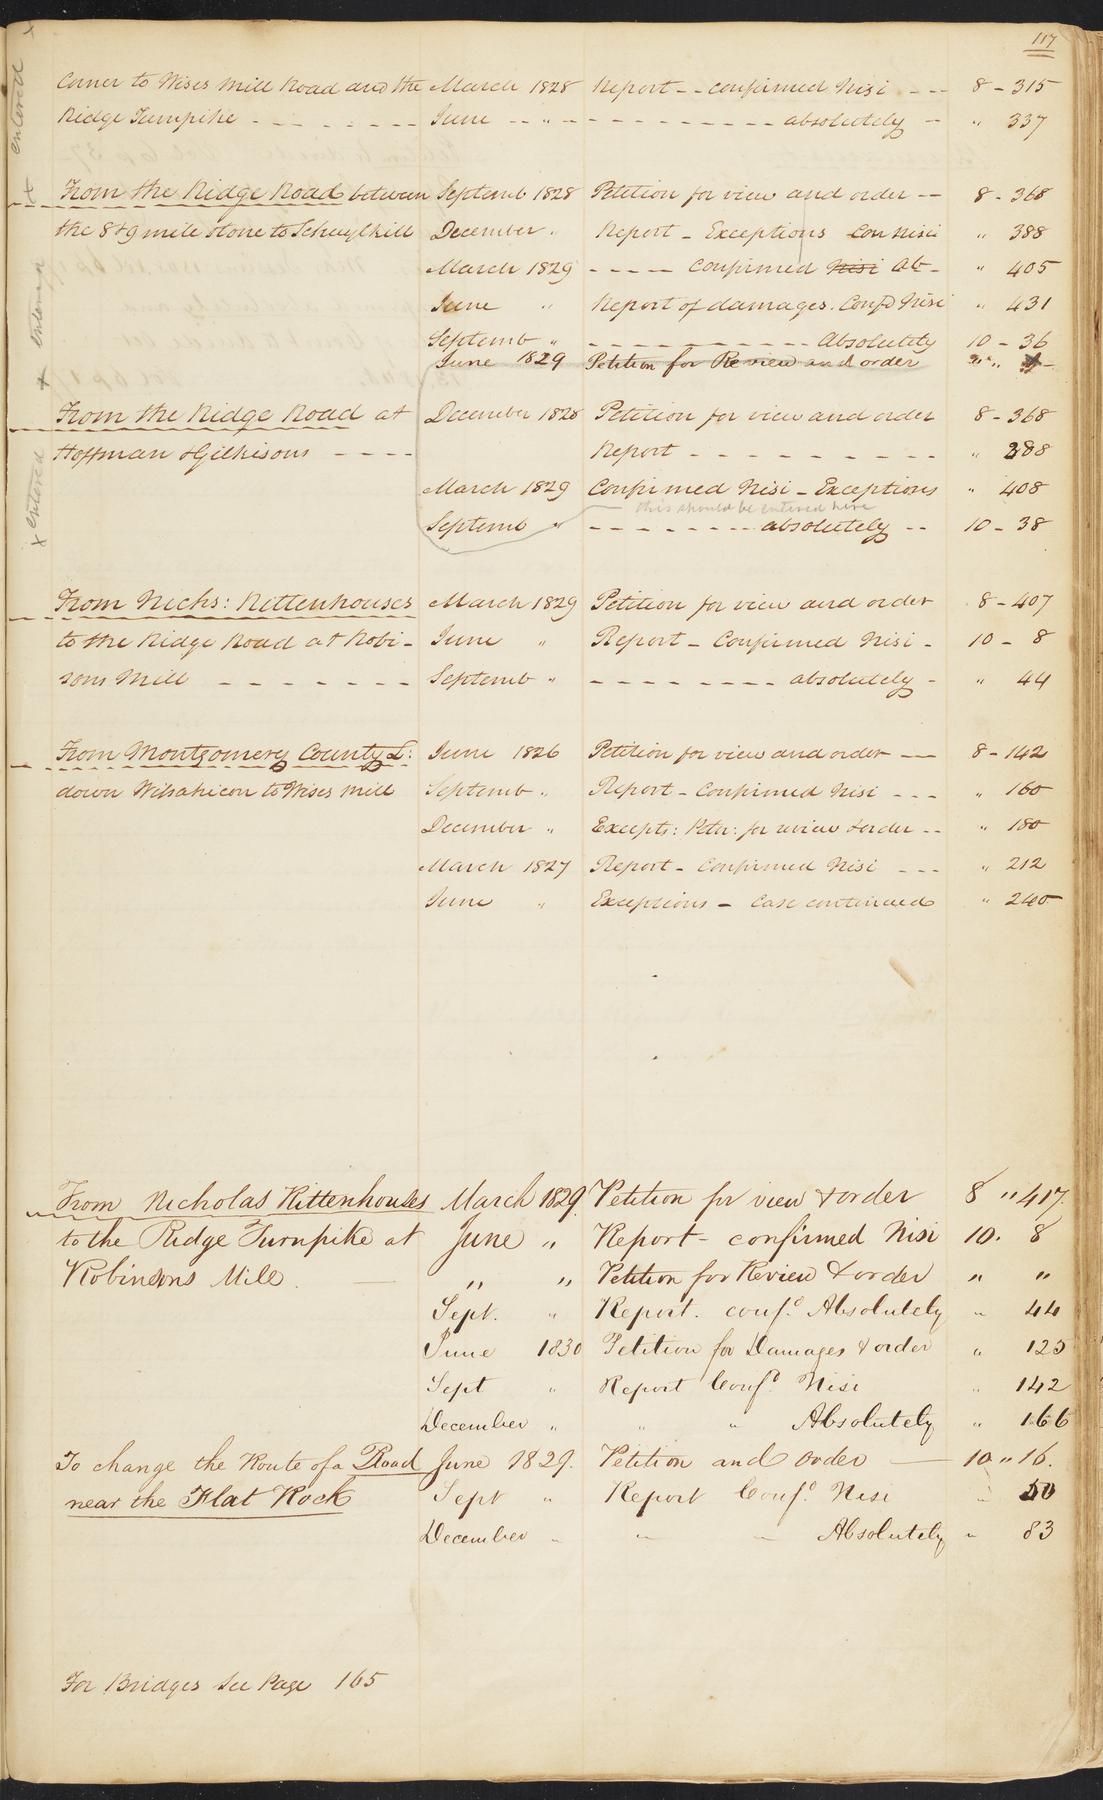 117
Corner to Wises Mill Road and the March 1828 Report - - confirmed Nisi - - - 8 - 315
Ridge Turnpike - - - - - - - June - - " - - - - - - - - - - - absolutely - " 337
From the Ridge Road between Septemb 1828 Petition for view and order - - 8 - 368
the 8 & 9 mile stone to Schuylkill December " Report - Exceptions Con Nisi " 388
March 1829 - - - - Confirmed Nisi Ab - " 405
June " Report of damages. Confd Nisi " 431
Septemb " - - - - - - - - - - Absolutely 10 - 36
June 1829 Petition for Review and order " "
From the Ridge Road at December 1828 Petition for view and order 8 - 368
Hoffman & Gilkisons - - - - Report - - - - - - - - - " 388
March 1829 Confirmed Nisi - Exceptions " 408
this should be entered here
Septemb " - - - - - - - - absolutely - - 10 - 38
From Nichs: Rittenhouses March 1829 Petition for view and order 8 - 407
to the Ridge Road at Robi- June " Report - Confirmed Nisi - 10 - 8
sons Mill - - - - - - - Septemb " - - - - - - - - absolutely - " 44
From Montgomery County L: June 1826 Petition for view and order - - 8 - 142
down Wisahicon to Wises Mill Septemb " Report - Confirmed Nisi - - - " 160
December " Excepts: Petn: for review & order - - " 180
March 1827 Report - Confirmed Nisi - - - " 212
June " Exceptions - Case continued " 240
From Nicholas Rittenhouses March 1829 Petition for view & order 8 " 417
to the Ridge Turnpike at June " Report - confirmed Nisi 10. 8
Robinsons Mill. " " Petition for Review & order " "
Sept. " Report. conf.d Absolutely " 44
June 1830 Petition for Damages & order " 125
Sept " Report Conf.d Nisi " 142
December " " " Absolutely " 166
To change the Route of a Road June 1829. Petition and order 10 " 16.
near the Flat Rock Sept " Report Conf.d Nisi " 50
December " " " Absolutely " 83
For Bridges See Page 165
x entered x
x entered
x entered